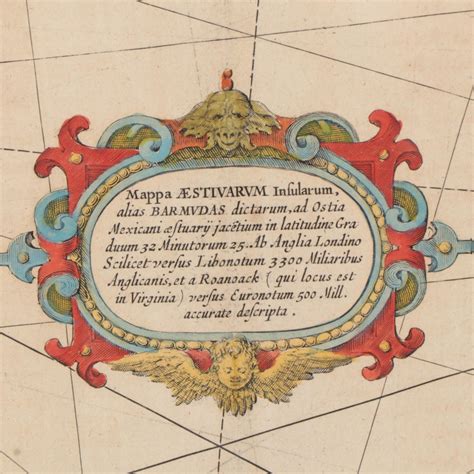 Mappa ÆSTIVARVM Insularum,
alias BARMVDAS dictarum, ad Ostia
Mexicani æstuarij jacetium in latitudine Gra
duum 32 Minutorum 25. Ab Anglia Londino
Scilicet versus Libonotum 3300 Miliaribus
Anglicanis, et a Roanoack ( qui locus est
in Virginia ) versus Euronotum 500 Mill.
accurate descripta.